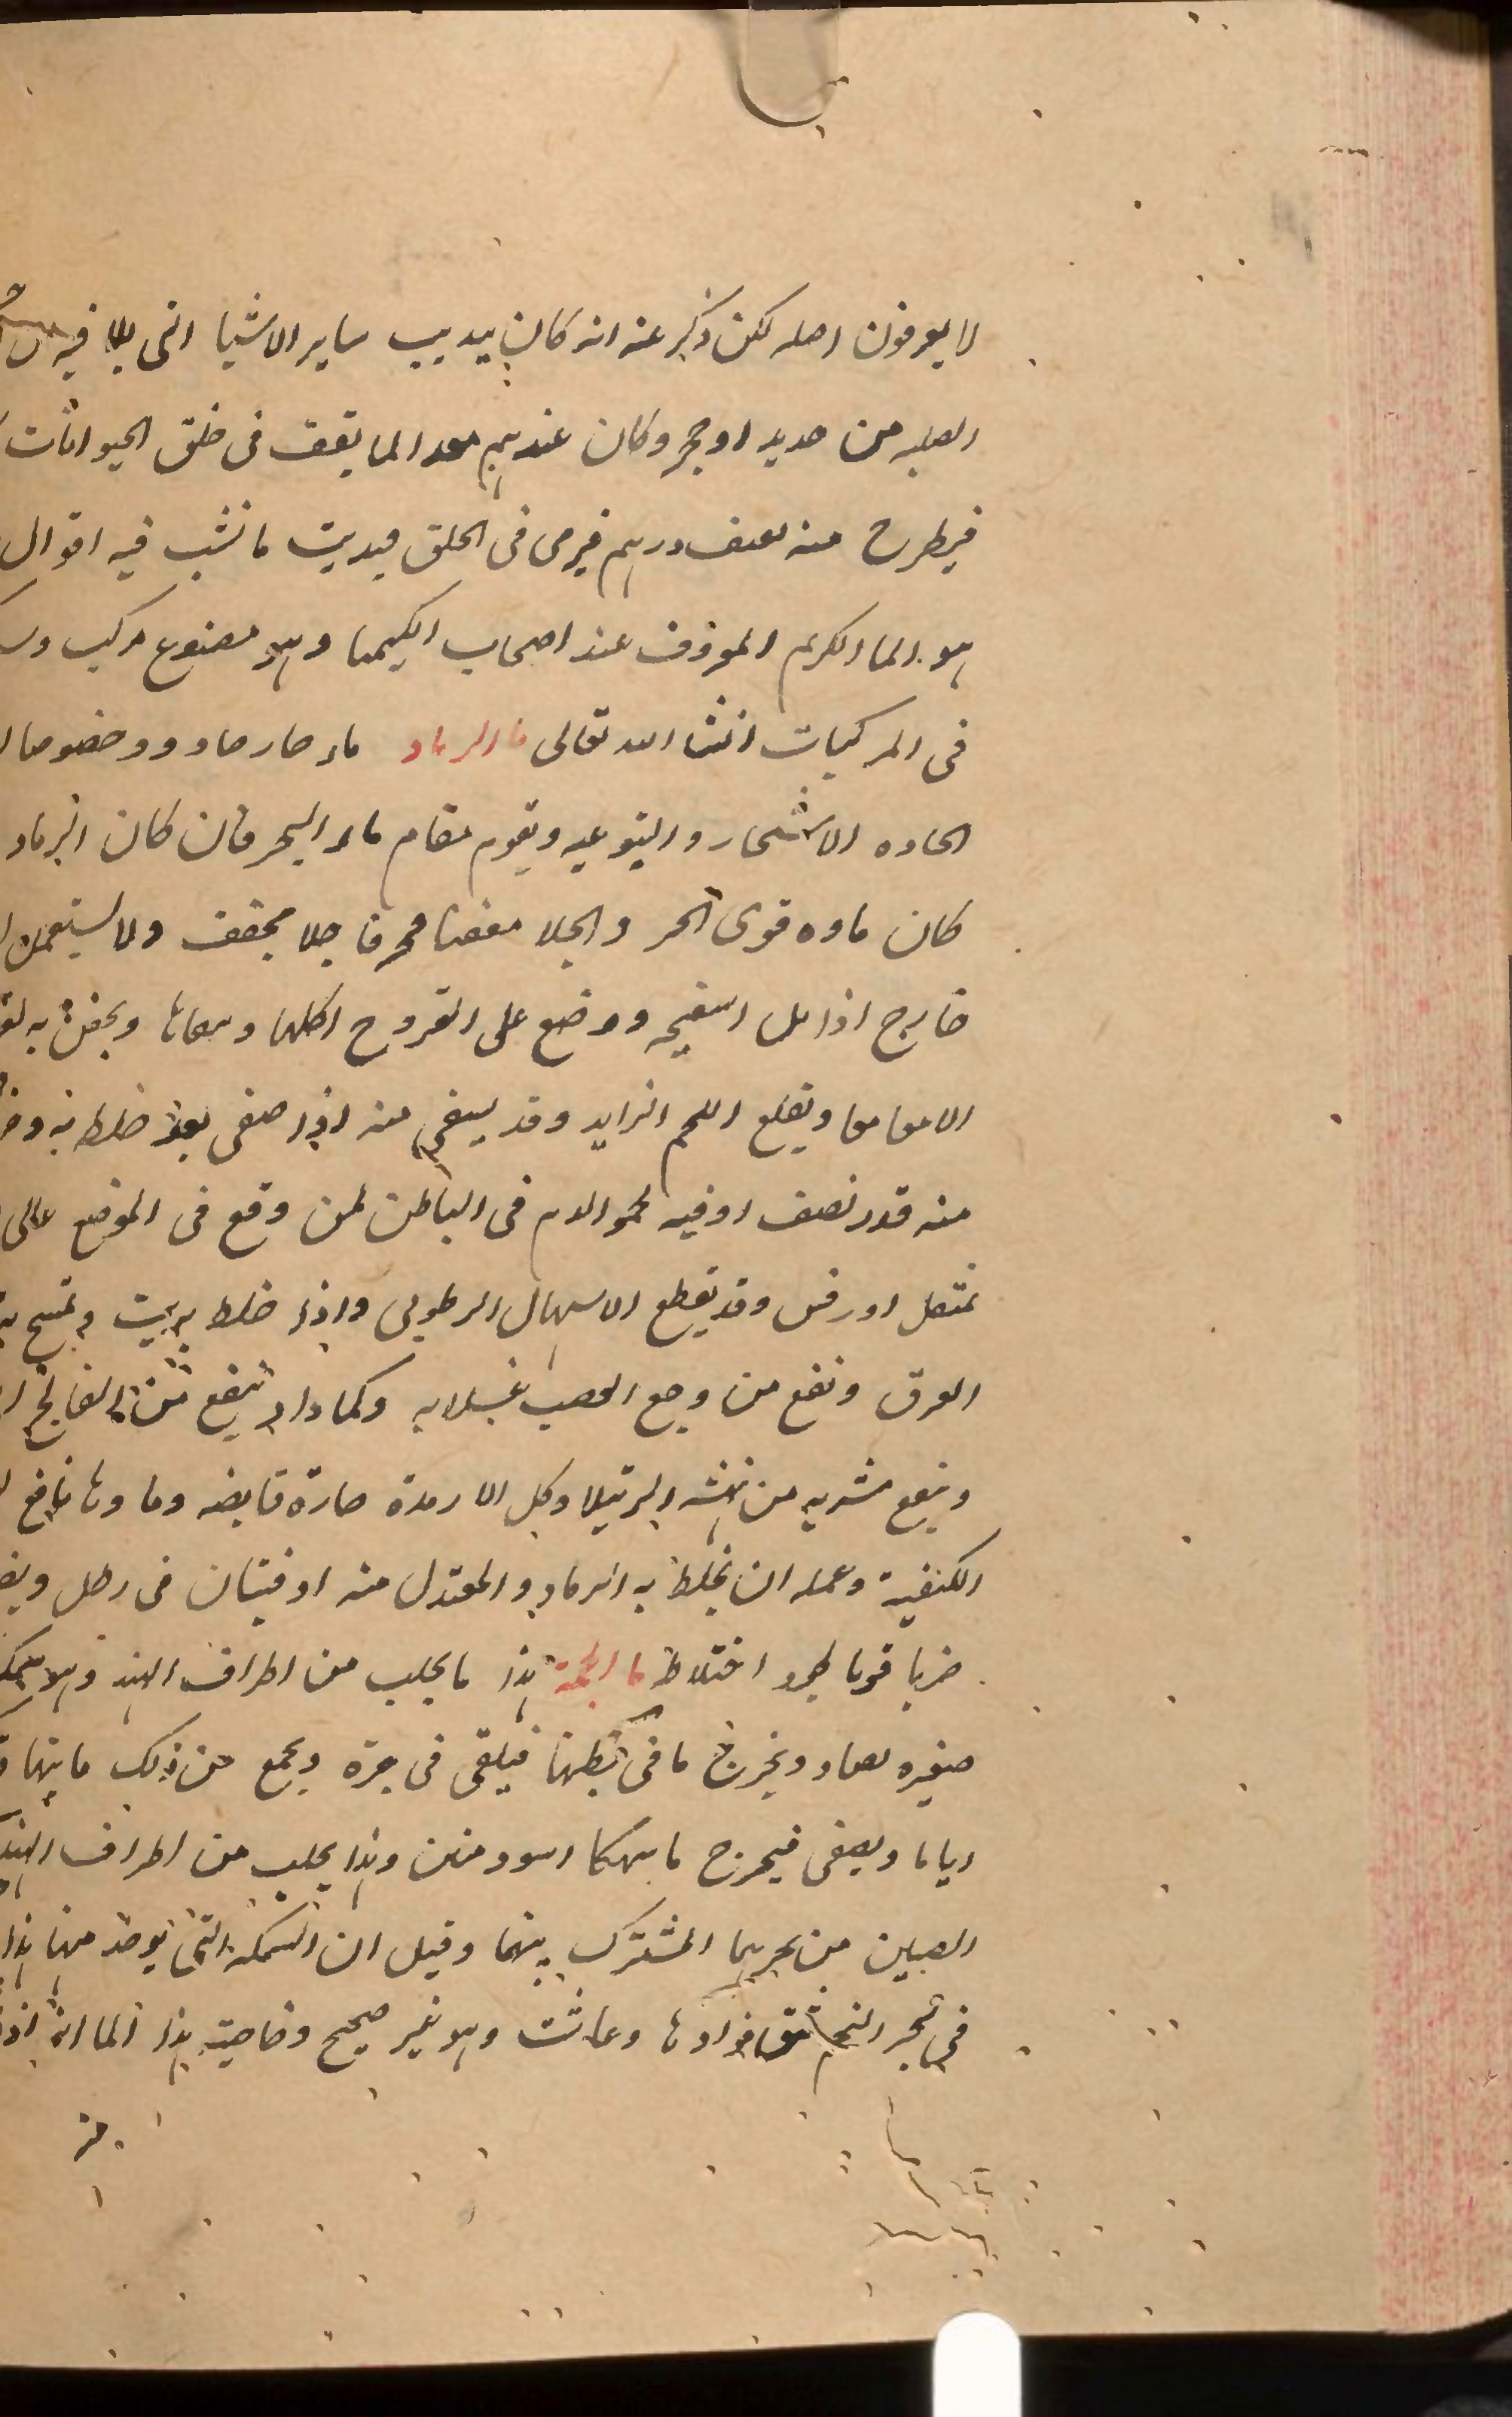 لا يعرفون اصله لكن ذكر عنه انه كان يذيب ساير الاشيا التى يلا فيه من
الصلبه من حديد او حجر وكان عندهم معد الما يقف فى حلق الحيوانات
فيطرح منه نصف درهم فيرمى فى الحلق فيذيب ما نشب فيه اقوال
هو الما الكريم المعروف عند اصحاب الكيميا وهو مصنوع مركب
فى المركبات انشا الله تعالى ما الرماد ماء حار حاد وخصوصا
الحاده الاشجار واليتوعيه ويقوم مقام ماء البحر فان كان الرماد
كان ماوه قوى الحر والجلا معفنا محرقا جلا مجفف ولا يستعمل
خارج اذا بل اسفنجه ووضع على القروح اكلها ونقاها ويحقن به
الامعا ويقلع اللحم الزايد وقد يسقى منه اذا صفى بعد خلط به
منه قدر نصف اوقيه لجمود الدم فى الباطن لمن وقع فى الموضع عالى
ثقيل او رفس وقد يقطع الاسهال الرطوبى واذا خلط بزيت وتمسح به
العرق ونفع من وجع العصب غسلا به وكمادا وينفع من الفالج
وينفع مشربه من نهشه الرتيلا وكل الارمدة حارة قابضه وماوها نافع
الكيفية وعمله ان يخلط به الرماد والمعتدل منه اوقيتان فى رطل
ضربا قويا ليجود اختلاط ما الجمة هذا ما يجلب من اطراف الهند وهو سمك
صغيره تصاد ويخرج ما فى بطنها فيلقى فى جرة ويجمع من ذلك ما
اياما ويصفى فيخرج ما سهكا اسود منتن وهذا يجلب من اطراف الهند
الصين من بحريهما المشترك بينهما وقيل ان السمكه التى يوخذ منها هذا
فى بحر النجم شق فوادها وعاشت وهو غير صحيح وخاصية هذا الما انه اذا